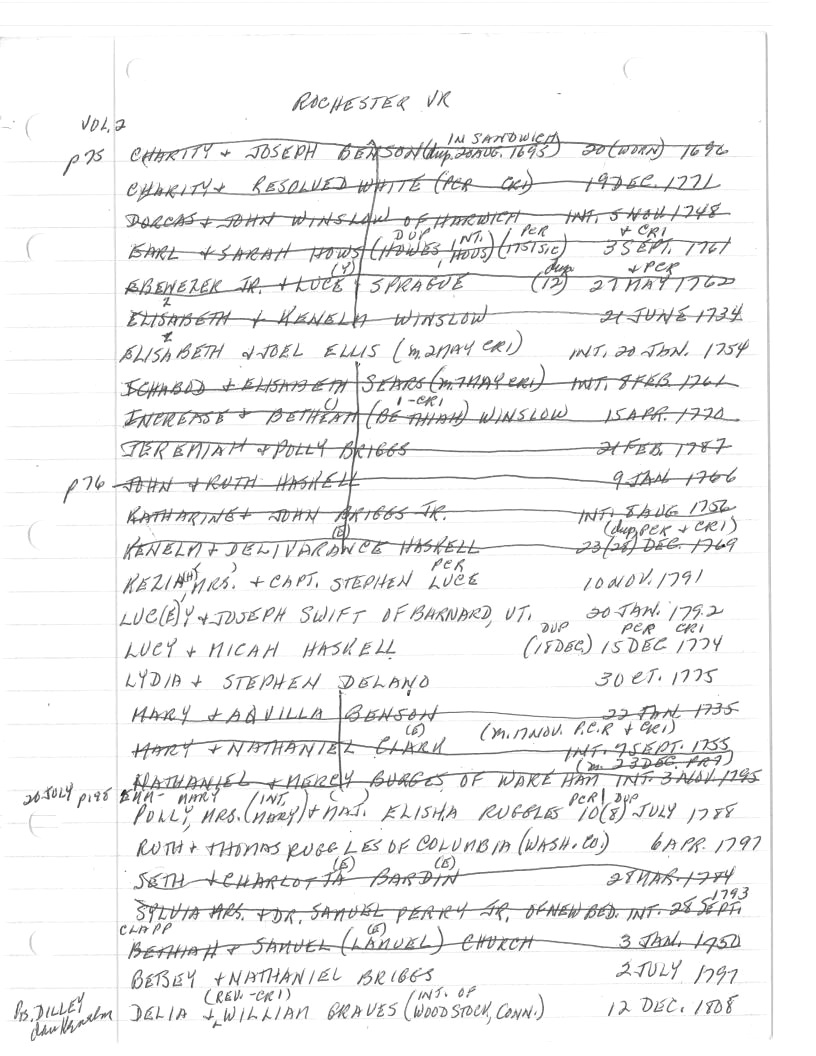 ROCHESTER VR
VOL. 2
IN SANDWICH
p 75 CHARITY + JOSEPH BENSON (dup. 20 AUG. 1695) 20 (WORN) 1696
CHARITY + RESOLVED WHITE (PCR CR1) 19 DEC. 1771
DORCAS + JOHN WINSLOW OF HARWICH INT. 5 NOV 1748
DUP INT. PCR + CR1
EARL + SARAH HOWS (HOWES, HOUS) (1751 SIC) 3 SEPT. 1761
(Y) dup + PCR
EBENEZER JR. + LUCE SPRAGUE (12) 27 MAY 1762
Z
ELISABETH + KENELM WINSLOW 21 JUNE 1734
Z
ELISABETH + JOEL ELLIS (m. 2 MAY CR1) INT. 20 JAN. 1754
ICHABOD + ELISABETH SEARS (m. 7 MAY CR1) INT. 8 FEB 1761
( ) 1-CR1
INCREASE + BETHEAH (BETHIAH) WINSLOW 15 APR. 1770
JEREMIAH + POLLY BRIGGS 21 FEB. 1787
p 76 JOHN + RUTH HASKELL 9 JAN 1766
KATHARINE + JOHN BRIGGS JR. INT. 8 AUG 1756
(E) (dup, PCR + CR1)
KENELM + DELIVARANCE HASKELL 23 (28) DEC. 1769
PCR
KEZIA(H), MRS. + CAPT. STEPHEN LUCE 10 NOV. 1791
LUC(E)Y + JOSEPH SWIFT OF BARNARD, VT. 20 JAN. 1792
DUP PCR CR1
LUCY + MICAH HASKELL (18 DEC) 15 DEC 1774
LYDIA + STEPHEN DELANO 30 CT. 1775
MARY + AQUILLA BENSON 22 JAN. 1735
(E) (m. 17 NOV. P.C.R + CR1)
MARY + NATHANIEL CLARK INT. 7 SEPT. 1755
(m. 23 DEC. PR7)
NATHANIEL + MERCY BURGES, OF WAREHAM INT. 3 NOV 1795
20 JULY p198 MARY (INT. ( ) PCR1 DUP
POLLY, MRS. (MARY) + MAJ. ELISHA RUGGLES 10 (8) JULY 1788
RUTH + THOMAS RUGGLES OF COLUMBIA (WASH. CO) 6 APR. 1797
(E) (E)
SETH + CHARLOTTA BARDIN 28 MAR. 1784
1793
SYLVIA MRS. + DR. SAMUEL PERRY JR. OF NEW BED. INT. 28 SEPT.
CLAPP (E)
BETHIAH + SAMUEL (LAMUEL) CHURCH 3 JAN. 1750
BETSEY + NATHANIEL BRIGGS 2 JULY 1797
(REV.-CR1) (INT. OF
DILLEY DELIA + WILLIAM GRAVES (WOODSTOCK, CONN.) 12 DEC. 1808